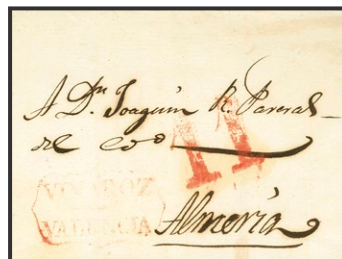 A Dn Joaquin R.
del Coo
11
VINAROZ
VALENCIA
Almeria